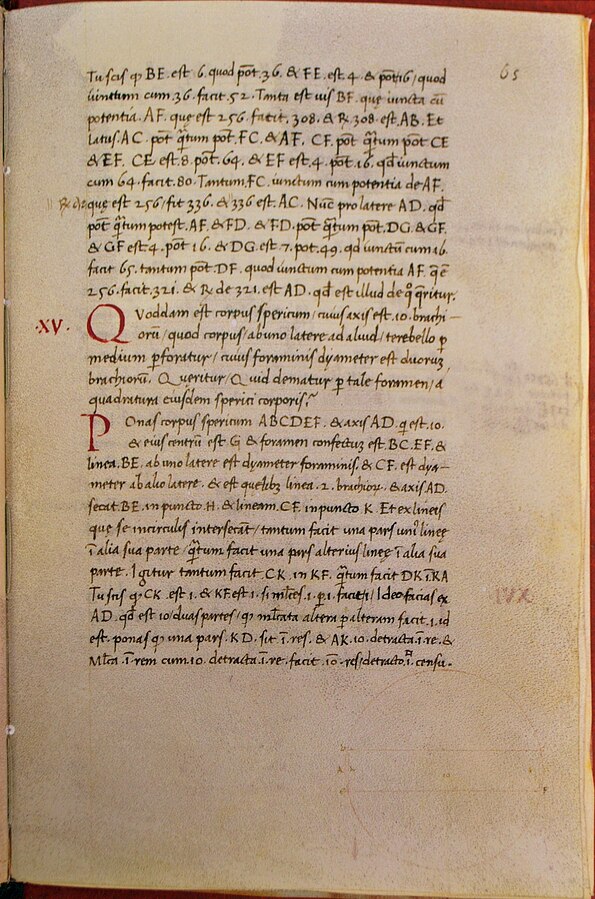 65
Tu scis qȝ BE. est 6. quod pōt. 36. & FE. est. 4. & pōt 16, quod
iunctum cum. 36. facit. 52. Tanta est uis BF. quę iuncta cū
potentia. AF. quę est 256. facit. 308. & R. 308. est. AB. Et
latus. AC. pōt q̄tum pōt. FC. & AF. CF. pōt q̄tum pōt CE
& EF. CE. est. 8. pōt. 64. & EF est. 4. pōt. 16. qđ iunctum
cum 64. facit. 80. Tantum. FC. iunctum cum potentia de AF.
quę est 256/ fit 336. & 336 est. AC. Nūc pro latere AD. qđ
pōt q̄tum potest. AF. & FD. & FD. pōt q̄tum pōt. DG & GF.
& GF est 4. pōt 16. & DG est. 7. pot. 49. qd iunctū cum 16.
facit 65. tantum pōt. DF. quod iunctum cum potentia AF. q̄ ē
256. facit. 321. & R de 321. est AD. qđ est illud de q° q̄ritur.
·XV· Quoddam est corpus spericum/ cuius axis est. 10. brachi–
orū/ quod corpus/ ab uno latere ad aliud/ terebello p
medium pforatur/ cuius foraminis dyameter est duorū
brachiorū. Queritur/ Quid dematur p tale foramen/ a
quadratura eiusdem sperici corporis?
Ponas corpus spericum ABCDEF. & axis AD. q est. 10.
& eius centrū est G & foramen confectuȝ est. BC. EF. &
linea. BE. ab uno latere est dyameter foraminis. & CF. est dya–
meter ab alio latere. & est quelibȝ linea. 2. brachiorȝ. & axis AD.
secat BE. in puncto. H. & lineam. CF. in puncto K. Et ex lineis
que se in circulis intersecāt/ tantum facit una pars uniꝰ lineę
ī alia sua parte/ q̄tum facit una pars alterius lineę ī alia sua
parte. Igitur tantum facit. CK. in KF. q̄tum facit DK ī KA
Tu scis qȝ CK. est. 1. & KF est 1. si m̄lces. 1. p 1. facit. 1/ Ideo facias ex
AD. qđ est 10/ duas partes/ qȝ m̄lcata altera p alteram facit. 1. id
est. ponas qȝ una pars. KD. sit .ī. res. & AK. 10. detracta .ī. re. &
Ml̄ca .ī. rem cum. 10. detracta .ī. re. facit. 10. res/ detracto .ī. censu.